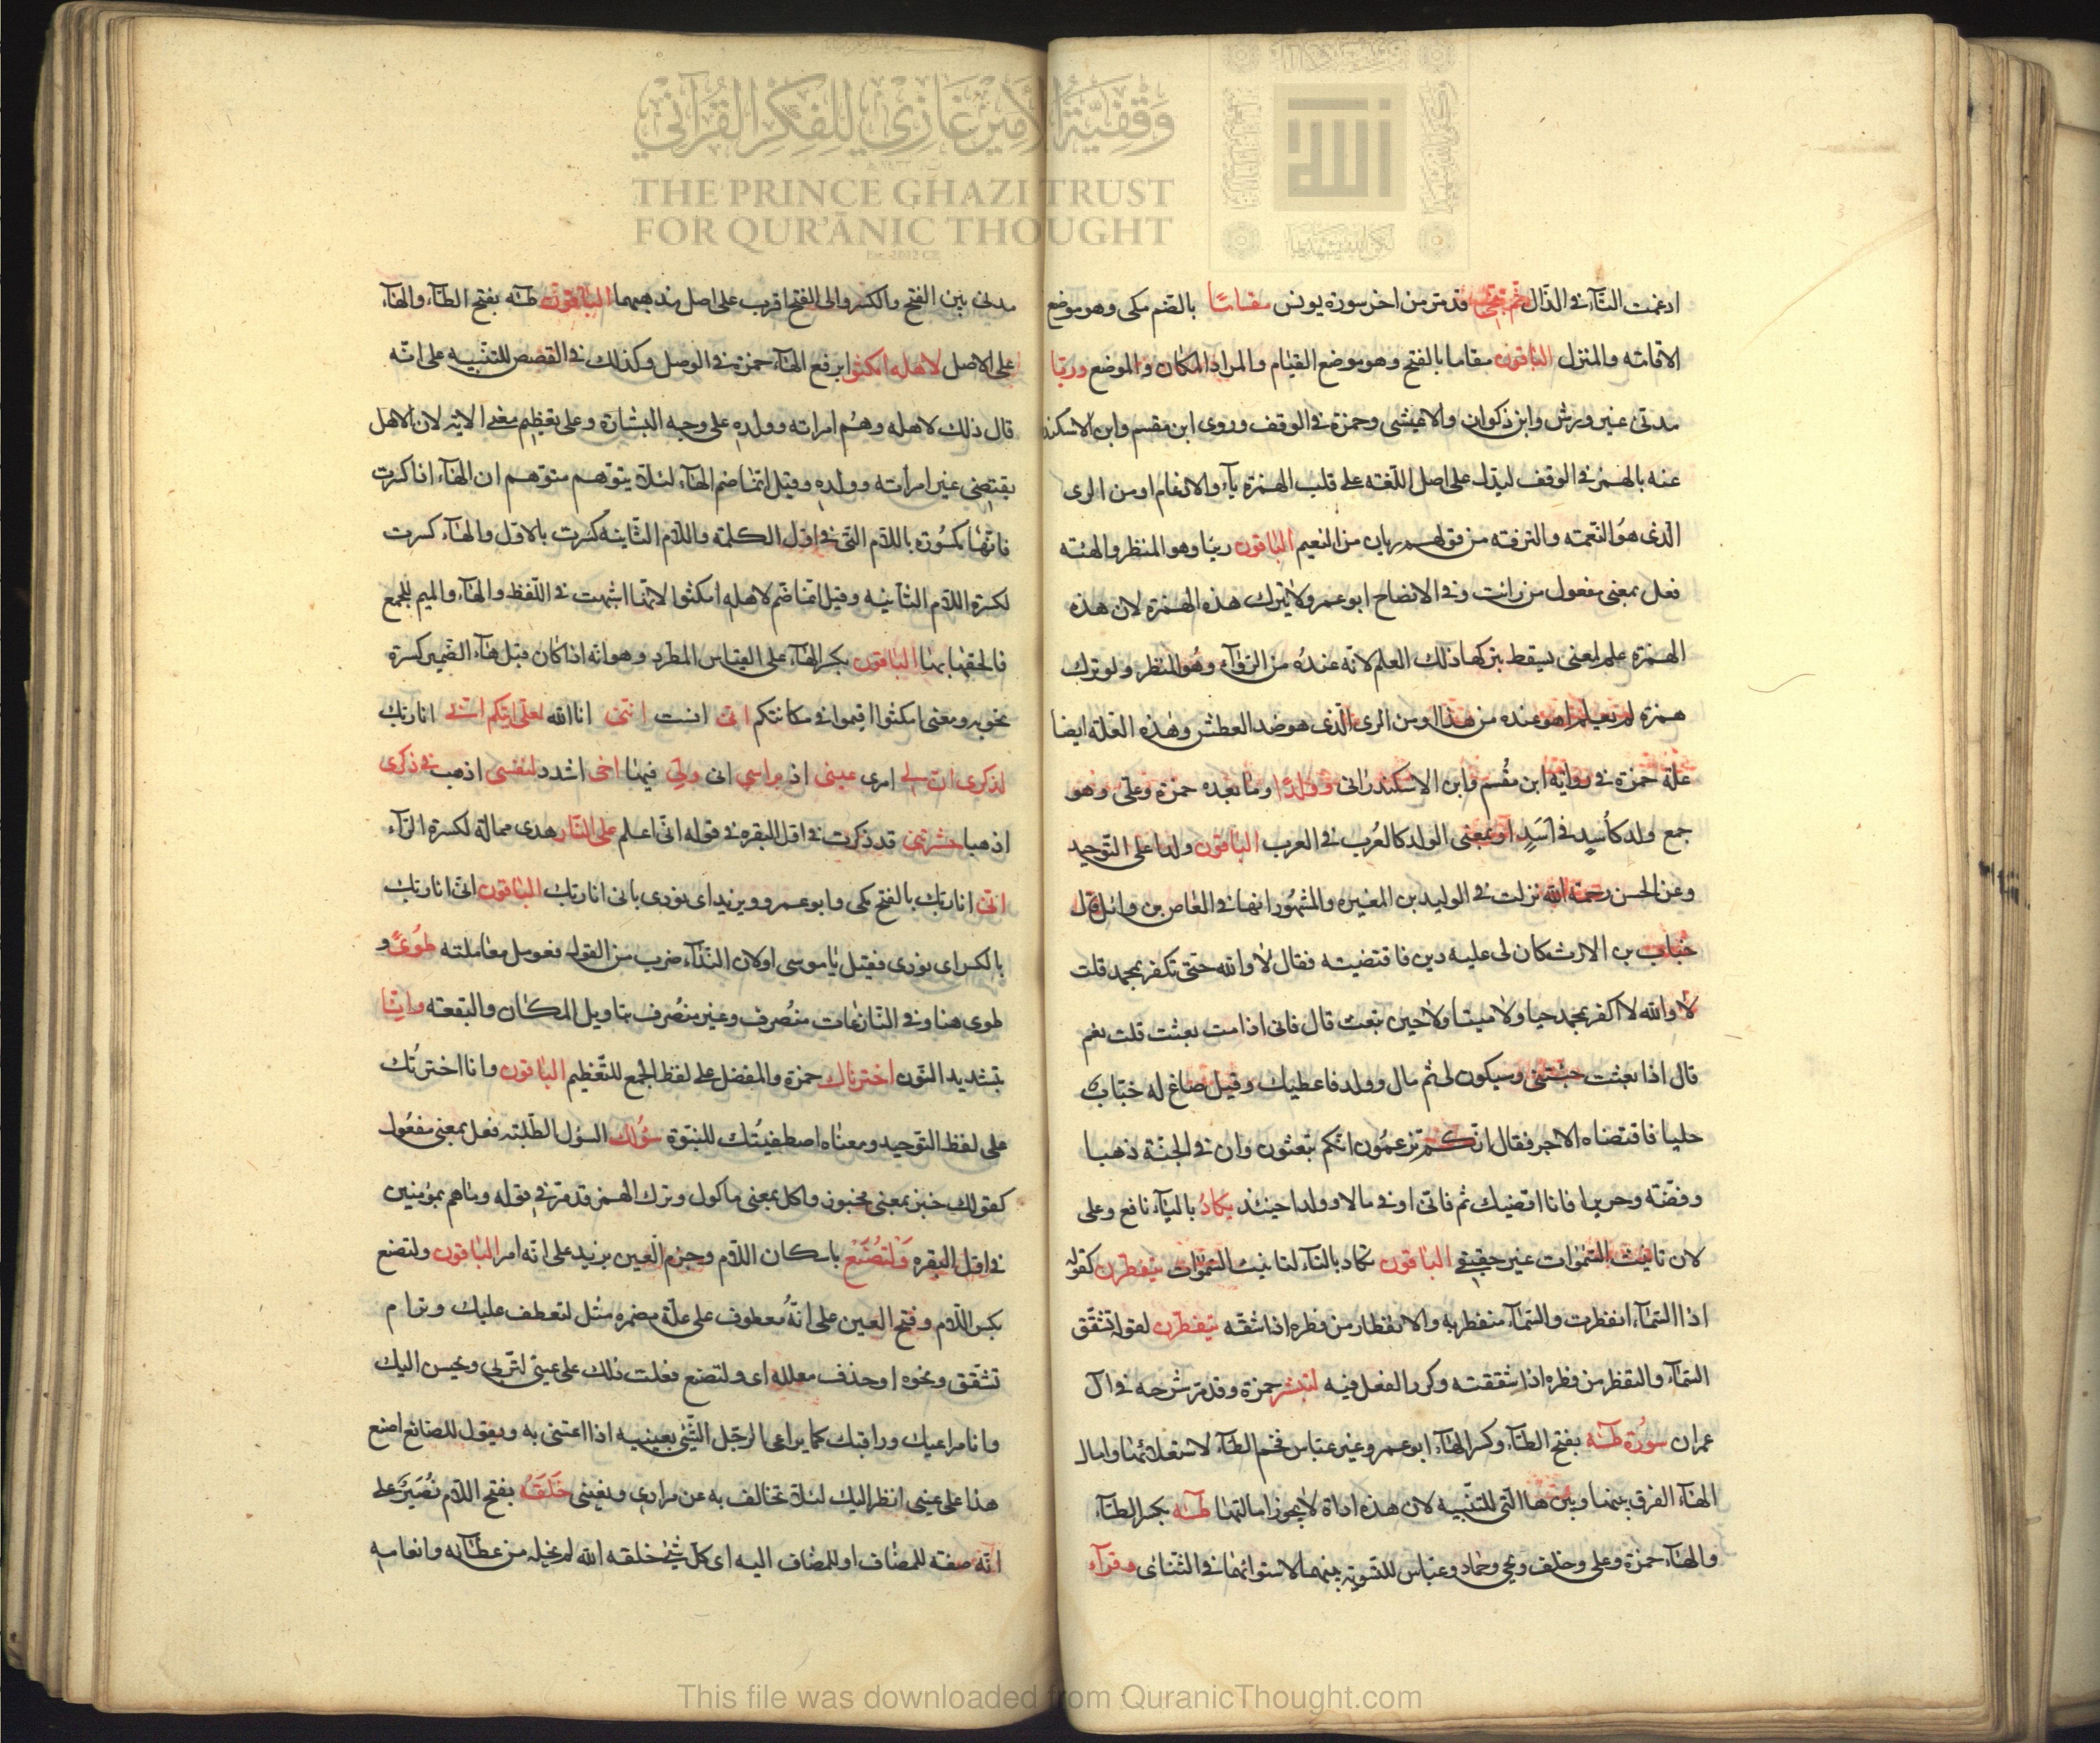 وقفية الأمير غازي للفكر القرآني
THE PRINCE GHAZI TRUST
FOR QUR'ĀNIC THOUGHT
ادغمت التآء فى الذال ثم ننجى قد مر من اخر سورة يونس مقاما بالضم مكى وهو موضع
الاقامته والمنزل الباقون مقاما بالفتح وهو موضع القيام والمراد المكان والموضع وريّا
مدنى غير ورش وابن ذكوان والاعيشى وحمزة فى الوقف وروى ابن مقسم وابن الاسكند
عنه بالهمز فى الوقف ليدل على اصل اللغة على قلب الهمزة يآء والادغام اومن الرى
الذى هو النعمته والترفته من قولهم ريان من النعيم الباقون رييا وهو المنظر والهئة
فعل بمعنى مفعول من رائت وفى الايضاح ابو عمرو لا يترك هذه الهمزة لان هذه
الهمزه علم لمعنى يسقط بتركها ذلك العلم لانه عنده من الروآء وهو المنظر ولو ترك
همزه لم يعلم اهو عنده من هذا اومن الرى الذى هو ضد العطش وهذه العلة ايضا
علة حمزة فى رواية ابن مقسم وابن الاسكندرانى وولدًا وما بعده حمزة وعلى وهو
جمع ولد كأسد فى اسد او بمعنى الولد كالعرب فى العرب الباقون ولدا على التوحيد
وعن الحسن رحمة الله نزلت فى الوليد بن المغيره والمشهور انها فى العاص بن وائل قال
خباب بن الارث كان لى عليه دين فاقتضيته فقال لا والله حتى تكفر بمحمد قلت
لا والله لا اكفر بمحمد حيا ولا ميتا ولا حين تبعث قال فانى اذا مت بعثت قلت نعم
قال اذا بعثت جئتنى وسيكون لى ثم مال وولد فاعطيك وقيل صاغ له خباب
حليا فاقتضاه الاجر فقال انكم تزعمون انكم تبعثون وان فى الجنة ذهبا
وفضته وحريرا فانا اقضيك ثم فانى اوتى مالا وولدا حينئذ يكاد باليآء نافع وعلى
لان تانيث السموات غير حقيقى الباقون تكاد بالتاء لتانيث السموات ينفطرن كقوله
اذا السمآء انفطرت والسمآء منفطر به والانفظار من فطره اذا شقه يتفطرن لقوله تشقق
السمآء والتفظر من فطره اذا شققته وكرر الفعل فيه لتبشر حمزة وقد مر شرحه فى آل
عمران سورة طه بفتح الطآء وكسر الهآء ابو عمرو غير عباس فخم الطآء لاستعلائها وامال
الهآء الفرق بينها وبين ها التى للتنبيه لان هذه اداة لا يجوز امالتها طه بكسر الطآء
والهآء حمزة وعلى وخلف ويحى وحماد وعباس للتسوية بينهما لاستوائهما فى الثنائى وقرآء
مدنى بين الفتح والكسر والى الفتح اقرب على اصل مذهبهما الباقون طه بفتح الطآء والهآء
على الاصل لاهله امكثوا برفع الهآء حمزة فى الوصل وكذلك فى القصص للتنبيه على انه
قال ذلك لاهله وهم امراته وولده على وجه البشارة وعلى تعظيم معنى الاية لان الاهل
يقتضى غير امراته وولده وقيل انما ضم الهآء لئلا يتوهم متوهم ان الهآء اذا كسرت
فانها مكسوره باللام التى فى اول الكلمته واللام الثانية كسرت بالاول والهآء كسرت
لكسرة اللام الثانيه وقيل انما ضم لاهله امكثوا لانها اشبهت فى اللفظ والهآء والميم للجمع
فالحقها بها الباقون بكسر الهآء على القياس المطرد وهو انه اذا كان قبل هآء الضمير كسرة
نحو به ومعنى امكثوا اقيموا فى مكانتكم انى انست اننى انا الله لعلى اتيكم انى انا ربك
لذكرى ان لى امرى عينى اذ براسى انى ولى فيها اخى اشدد لنفسى اذهب فى ذكرى
اذهبا حشرتنى قد ذكرت فى اول البقره فى قوله انى اعلم على النار هدى ممالة لكسرة الرآء
انى انا ربك بالفتح مكى وابو عمرو ويزيد اى نودى بانى انا ربك الباقون انى انا ربك
بالكسر اى نودى فقيل يا موسى او لان الندآء ضرب من القول فعومل معاملته طوى و
طوى هنا وفى النازعات منصرف وغير منصرف بتاويل المكان والبقعته وانّا
بتشديد النون اخترناك حمزة والمفضل على لفظ الجمع للتعظيم الباقون وانا اخترتك
على لفظ التوحيد ومعناه اصطفيتك للنبوة سؤلك السؤل الطلبته فعل بمعنى مفعول
كقولك خبز بمعنى مخبوز واكل بمعنى ماكول وترك الهمز قد مر فى قوله وما هم بمؤمنين
فى اول البقره ولتصنع باسكان اللام وجزم العين يزيد على انه امر الباقون ولتصنع
بكسر اللام وفتح العين على انه معطوف على علة مضمره مثل لتعطف عليك وترام
تشقق ونحوه او حذف معلله اى ولتصنع فعلت ذلك على عينى لتربى ويحسن اليك
وانا مراعيك وراقبك كما يراعى الرجل الشئ بعينيه اذا اعتنى به ويقول للصانع اصنع
هذا على عينى انظر اليك لئلا تخالف به عن مرادى وبغيتى خلقه بفتح اللام نصير على
انه صفته للمضاف او للمضاف اليه اى كل شئ خلقه الله لم يخله من عطائه وانعامه
This file was downloaded from QuranicThought.com